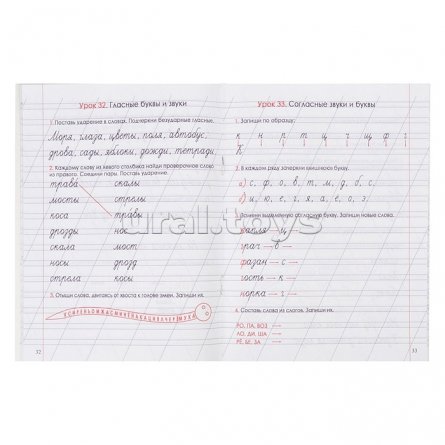 Урок 32. Гласные буквы и звуки
1. Поставь ударение в словах. Подчеркни безударные гласные.
Моря, глаза, цветы, поля, автобус,
дрова, сады, яблоки, дожди, тетради.
2. Каждому слову из левого столбика найди проверочное слово
из правого. Соедини пары. Поставь ударение.
трава скалы
мосты стрелы
коса травы
дрозды нос
скала мост
носы дрозд
стрела косы
слова, двигаясь от хвоста к голове змеи. Запиши их.
32
Урок 33. Согласные звуки и буквы
1. Запиши по образцу.
к н р т ц ч щ ф г
К
2. В каждом ряду зачеркни лишнюю букву.
а) с, ф, о, в, т, м, д, б, с.
б) и, ю, е, г, я, а, е, о, э.
3. Замени выделенную согласную букву. Запиши новые слова.
капля – ц →
грач – в →
фазан – с →
гость – к →
норка – г →
4. Составь слова из слогов. Запиши их.
РО, ПА, ВОЗ →
ЛО, ДИ, ША →
РЁ, БЕ, ЗА →
33
ural.toys